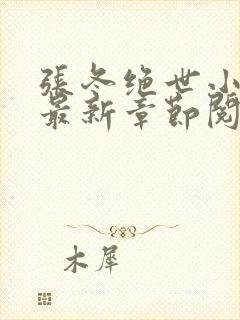 張冬绝世小
最新章節閱
木犀